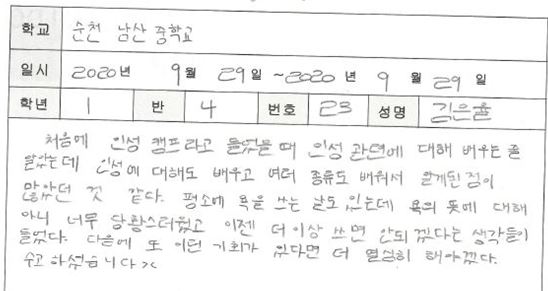 학교 순천 남산 중학교
일시 2020년 9월 29일 ~2020 년 9 월 29 일
학년 1 반 4 번호 23 성명 김은율
처음에 인성 캠프라고 들었을 때 인성 관련에 대해 배우는 줄
알았는데 인성에 대해도 배우고 여러 종류도 배워서 알게된 점이
많았던 것 같다. 평소에 욕을 쓰는 날도 있는데 욕의 뜻에 대해
아니 너무 당황스러웠고 이젠 더이상 쓰면 안되겠다는 생각들이
들었다. 다음에 또 이런 기회가 있다면 더 열심히 해야겠다.
수고 하셨습니다><